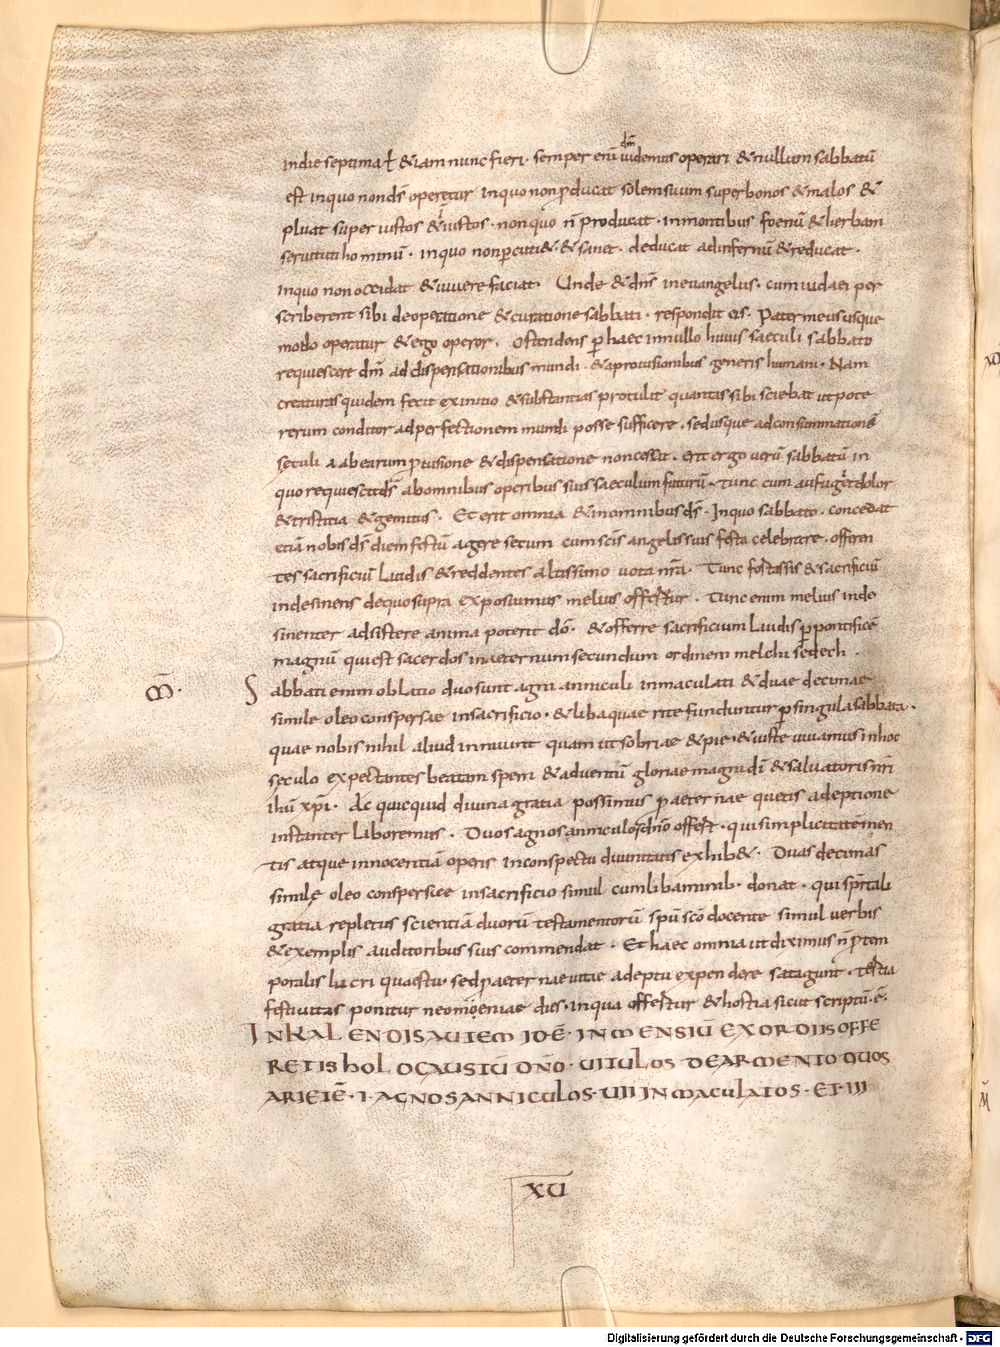 indie septima ł & iam nunc fieri · semper enī dm̄ uidemus operari & nullum sabbatū
est inquo non ds̄ operetur inquo non ꝓducat solem suum super bonos & malos &
pluat super iustos & iustos · non quo n̄ producat · inmontibus foenū & herbam
seruituti hominū · inquo non percutit & & sanet · deducat ad infernū & reducat ·
inquo non occidat & uiuere faciat · Unde & dn̄s ineuangelus · cum iudaei per
scriberent sibi de operatione & curatione sabbati · respondit eis · Pater meus usque
modo operatur & ego operor · Ostendens ꝑ haec innullo huius saeculi sabbato
requiescere dm̄ ad dispensationibus mundi · & aprouisionibus generis humani · Nam
creaturas quidem fecit exinitio & substantias protulit quantas sibi sciebat utpote
rerum conditor ad perfectionem mundi posse sufficere · sedusque ad consummationē
sęculi a abearum ꝓuisione & dispensatione non cessat · erit ergo uerū sabbatū in
quo requiescet ds̄ abomnibus operibus suis saeculum futurū · Tunc cum aufugiet dolor
& tristitia & gemitus · Et erit omnia & in omnibus ds̄ · Inquo sabbato · concedat
etiā nobis ds̄ diem festū agere secum cum scīs angelis suis festa celebrare · offeren
tes sacrificiū laudis & reddentes altissimo uota nr̄a · Tunc fortassis & sacrificiū
indesinens dequo supra exposuimus melius offertur · Tunc enim melius inde
sinenter adsistere anima poterit dō · & offerre sacrificium laudis ꝑ pontificē
magnū qui est sacerdos inaeternum secundum ordinem melchi sedech ·
M̄ · Sabbati enim oblatio duo sunt agni anniculi inmaculati & duae decimae
similę oleo conspersae insacrificio · & liba quae rite funduntur ꝑ singula sabbata ·
quae nobis nihil aliud innuunt quam ut sobriae & pie · & iuste uiuamus inhoc
sęculo expectantes beatam spem & aduentū gloriae magni dī & saluatoris nr̄i
ihū xp̄i · Ac quicquid diuina gratia possimus ꝓ aeternae quetis adeptione
instanter laboremus · Duos agnos anniculos dn̄o offert · qui simplicitatē men
tis atque innocentiā operis inconspectu diuinitatis exhib& · Duas decimas
similę oleo conspersice insacrificio simul cum libaminib · donat · qui spīrtali
gratia repletus scientiā duorū testamentorū spū scō docente simul uerbis
& exemplis auditoribus suis commendat · Et haec omnia ut diximus n̄ ꝓ tem
poralis lucri quaestu · sed ꝓ aeternae uitae adeptu expendere satagunt · tertia
festiuitas ponitur neomoeniae dies · inqua offertur & hostia sicut scriptū · ē ·
IN KALENDIS AUTEM ID Ē · IN MENSIŪ EXORDIIS OFFE
RETIS HOLOCAUSTŪ DN̄O · UITULOS DE ARMENTO DUOS
ARIETĒ · I · AGNOS ANNICULOS · UII INMACULATOS · ET III
XU
Digitalisierung gefördert durch die Deutsche Forschungsgemeinschaft - DFG